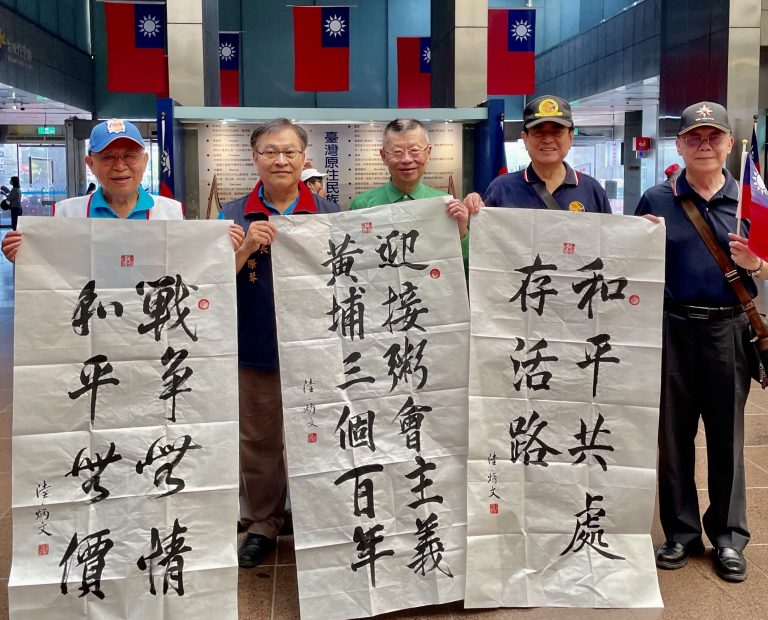 臺灣原住民族
戰爭無情
和平無價
陸炳文
迎接粥會主義
黃埔三個百年
陸炳文
和平共處
存活路
陸炳文